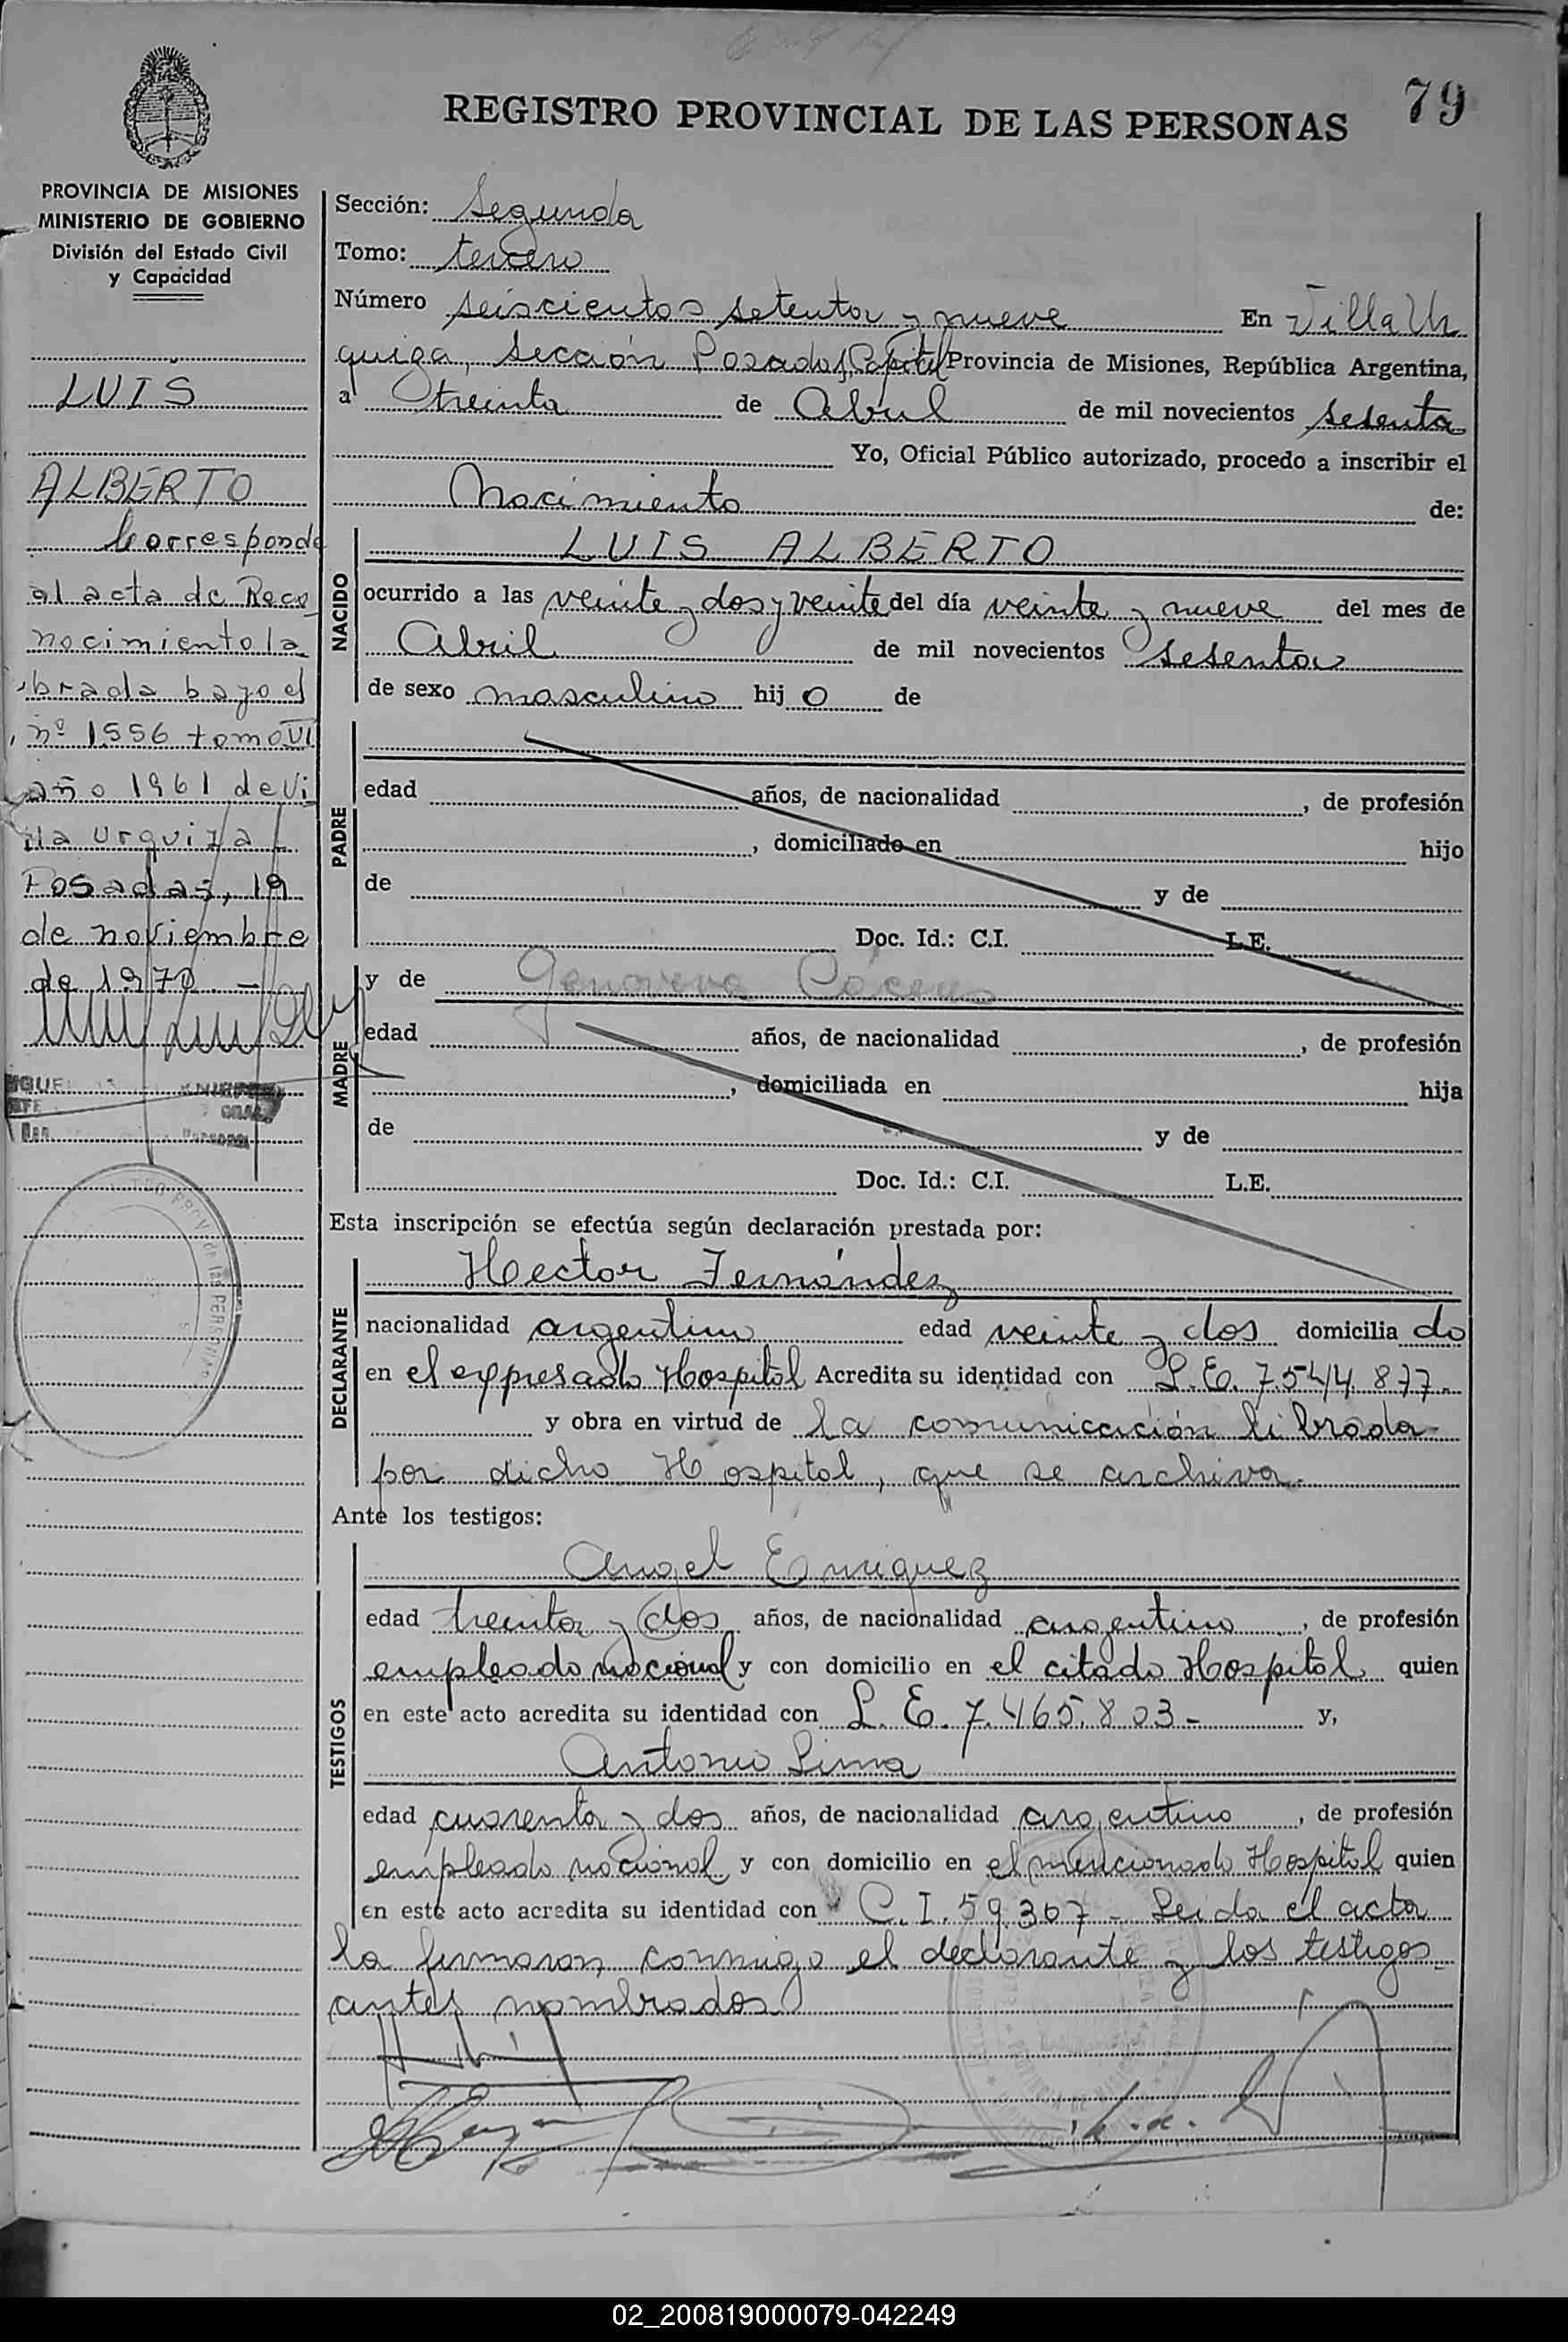 REGISTRO PROVINCIAL DE LAS PERSONAS 79
PROVINCIA DE MISIONES
MINISTERIO DE GOBIERNO
División del Estado Civil
y Capacidad
LUIS
ALBERTO
Corresponde
al acta de Reco
nocimiento la
brada bajo el
nº 1556 tomo VI
año 1961 de Vi
lla Urquiza
Posadas, 19
de noviembre
de 1970.-
Sección: Segunda
Tomo: tercero
Número seiscientos setenta y nueve En Villa Ur
quiza, Sección Posadas, Capital Provincia de Misiones, República Argentina,
a treinta de Abril de mil novecientos sesenta
Yo, Oficial Público autorizado, procedo a inscribir el
Nacimiento de:
NACIDO
LUIS ALBERTO
ocurrido a las veinte y dos y veinte del día veinte y nueve del mes de
Abril de mil novecientos sesenta
de sexo masculino hij o de
PADRE
edad años, de nacionalidad , de profesión
, domiciliado en hijo
de y de
Doc. Id.: C.I. L.E.
MADRE
y de Genoveva Cáceres
edad años, de nacionalidad , de profesión
, domiciliada en hija
de y de
Doc. Id.: C.I. L.E.
Esta inscripción se efectúa según declaración prestada por:
DECLARANTE
Hector Fernández
nacionalidad argentino edad veinte y dos domicilia do
en el expresado Hospital Acredita su identidad con L.E. 7.544.877-
y obra en virtud de la comunicación librada
por dicho Hospital, que se archiva.
Ante los testigos:
TESTIGOS
Angel Enriquez
edad treinta y dos años, de nacionalidad argentino , de profesión
empleado nacional y con domicilio en el citado Hospital quien
en este acto acredita su identidad con L.E. 7.465.803- y,
Antonio Lima
edad cuarenta y dos años, de nacionalidad argentino , de profesión
empleado nacional y con domicilio en el mencionado Hospital quien
en este acto acredita su identidad con C.I. 59.367- Leida el acta
la firmaron conmigo el declarante y los testigos
antes nombrados
02_200819000079-042249